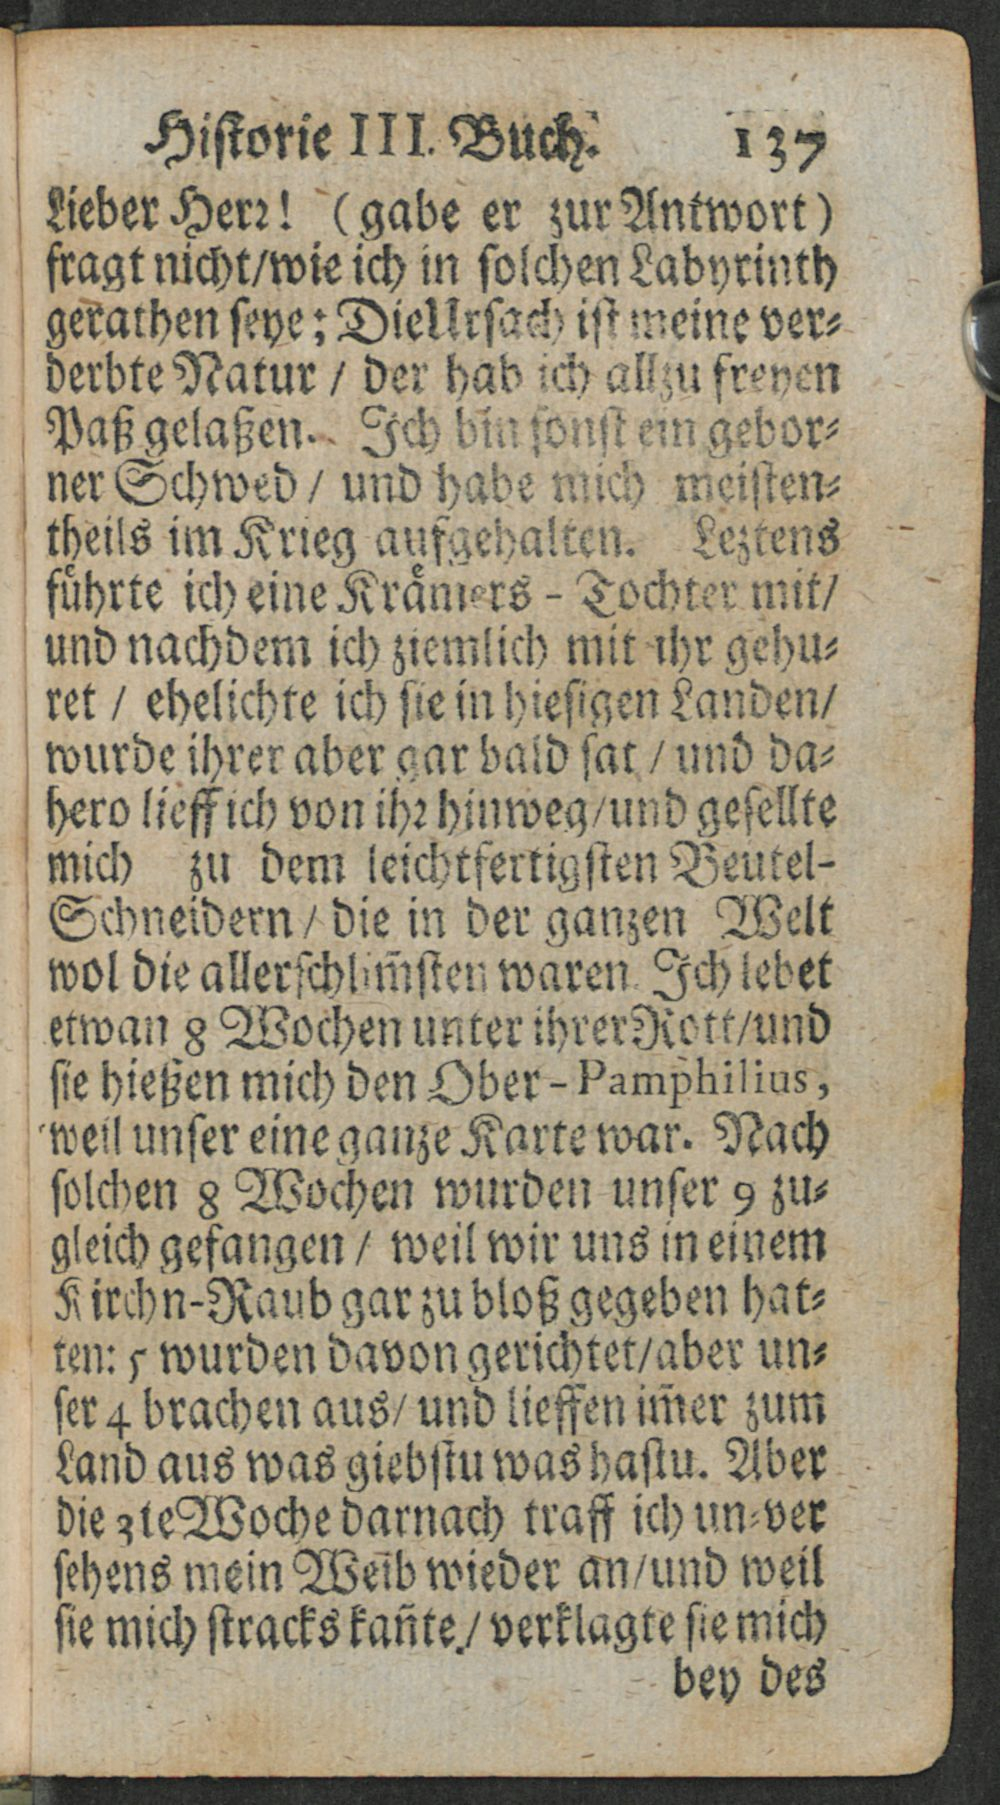 Historie III. Buch. 137
Lieber Herꝛ! (gabe er zur Antwort)
fragt nicht/wie ich in solchen Labyrinth
gerathen seye; Die Ursach ist meine ver⸗
derbte Natur / der hab ich allzu freyen
Paß gelaßen. Ich bin sonst ein gebor⸗
ner Schwed / und habe mich meisten⸗
theils im Krieg aufgehalten. Leztens
fuͤhrte ich eine Kraͤmers - Tochter mit/
und nachdem ich ziemlich mit ihr gehu⸗
ret / ehelichte ich sie in hiesigen Landen/
wurde ihrer aber gar bald sat / und da⸗
hero lieff ich von ihꝛ hinweg/und gesellte
mich zu dem leichtfertigsten Beutel-
Schneidern / die in der ganzen Welt
wol die allerschlim̄sten waren. Ich lebet
etwan 8 Wochen unter ihrer Rott/und
sie hießen mich den Ober-Pamphilius,
weil unser eine ganze Karte war. Nach
solchen 8 Wochen wurden unser 9 zu⸗
gleich gefangen / weil wir uns in einem
Kirchn-Raub gar zu bloß gegeben hat⸗
ten: 5 wurden davon gerichtet/aber un⸗
ser 4 brachen aus/ und lieffen im̄er zum
Land aus was giebstu was hastu. Aber
die 3te Woche darnach traff ich un⸗ver
sehens mein Weib wieder an/und weil
sie mich stracks kan̄te/ verklagte sie mich
bey des